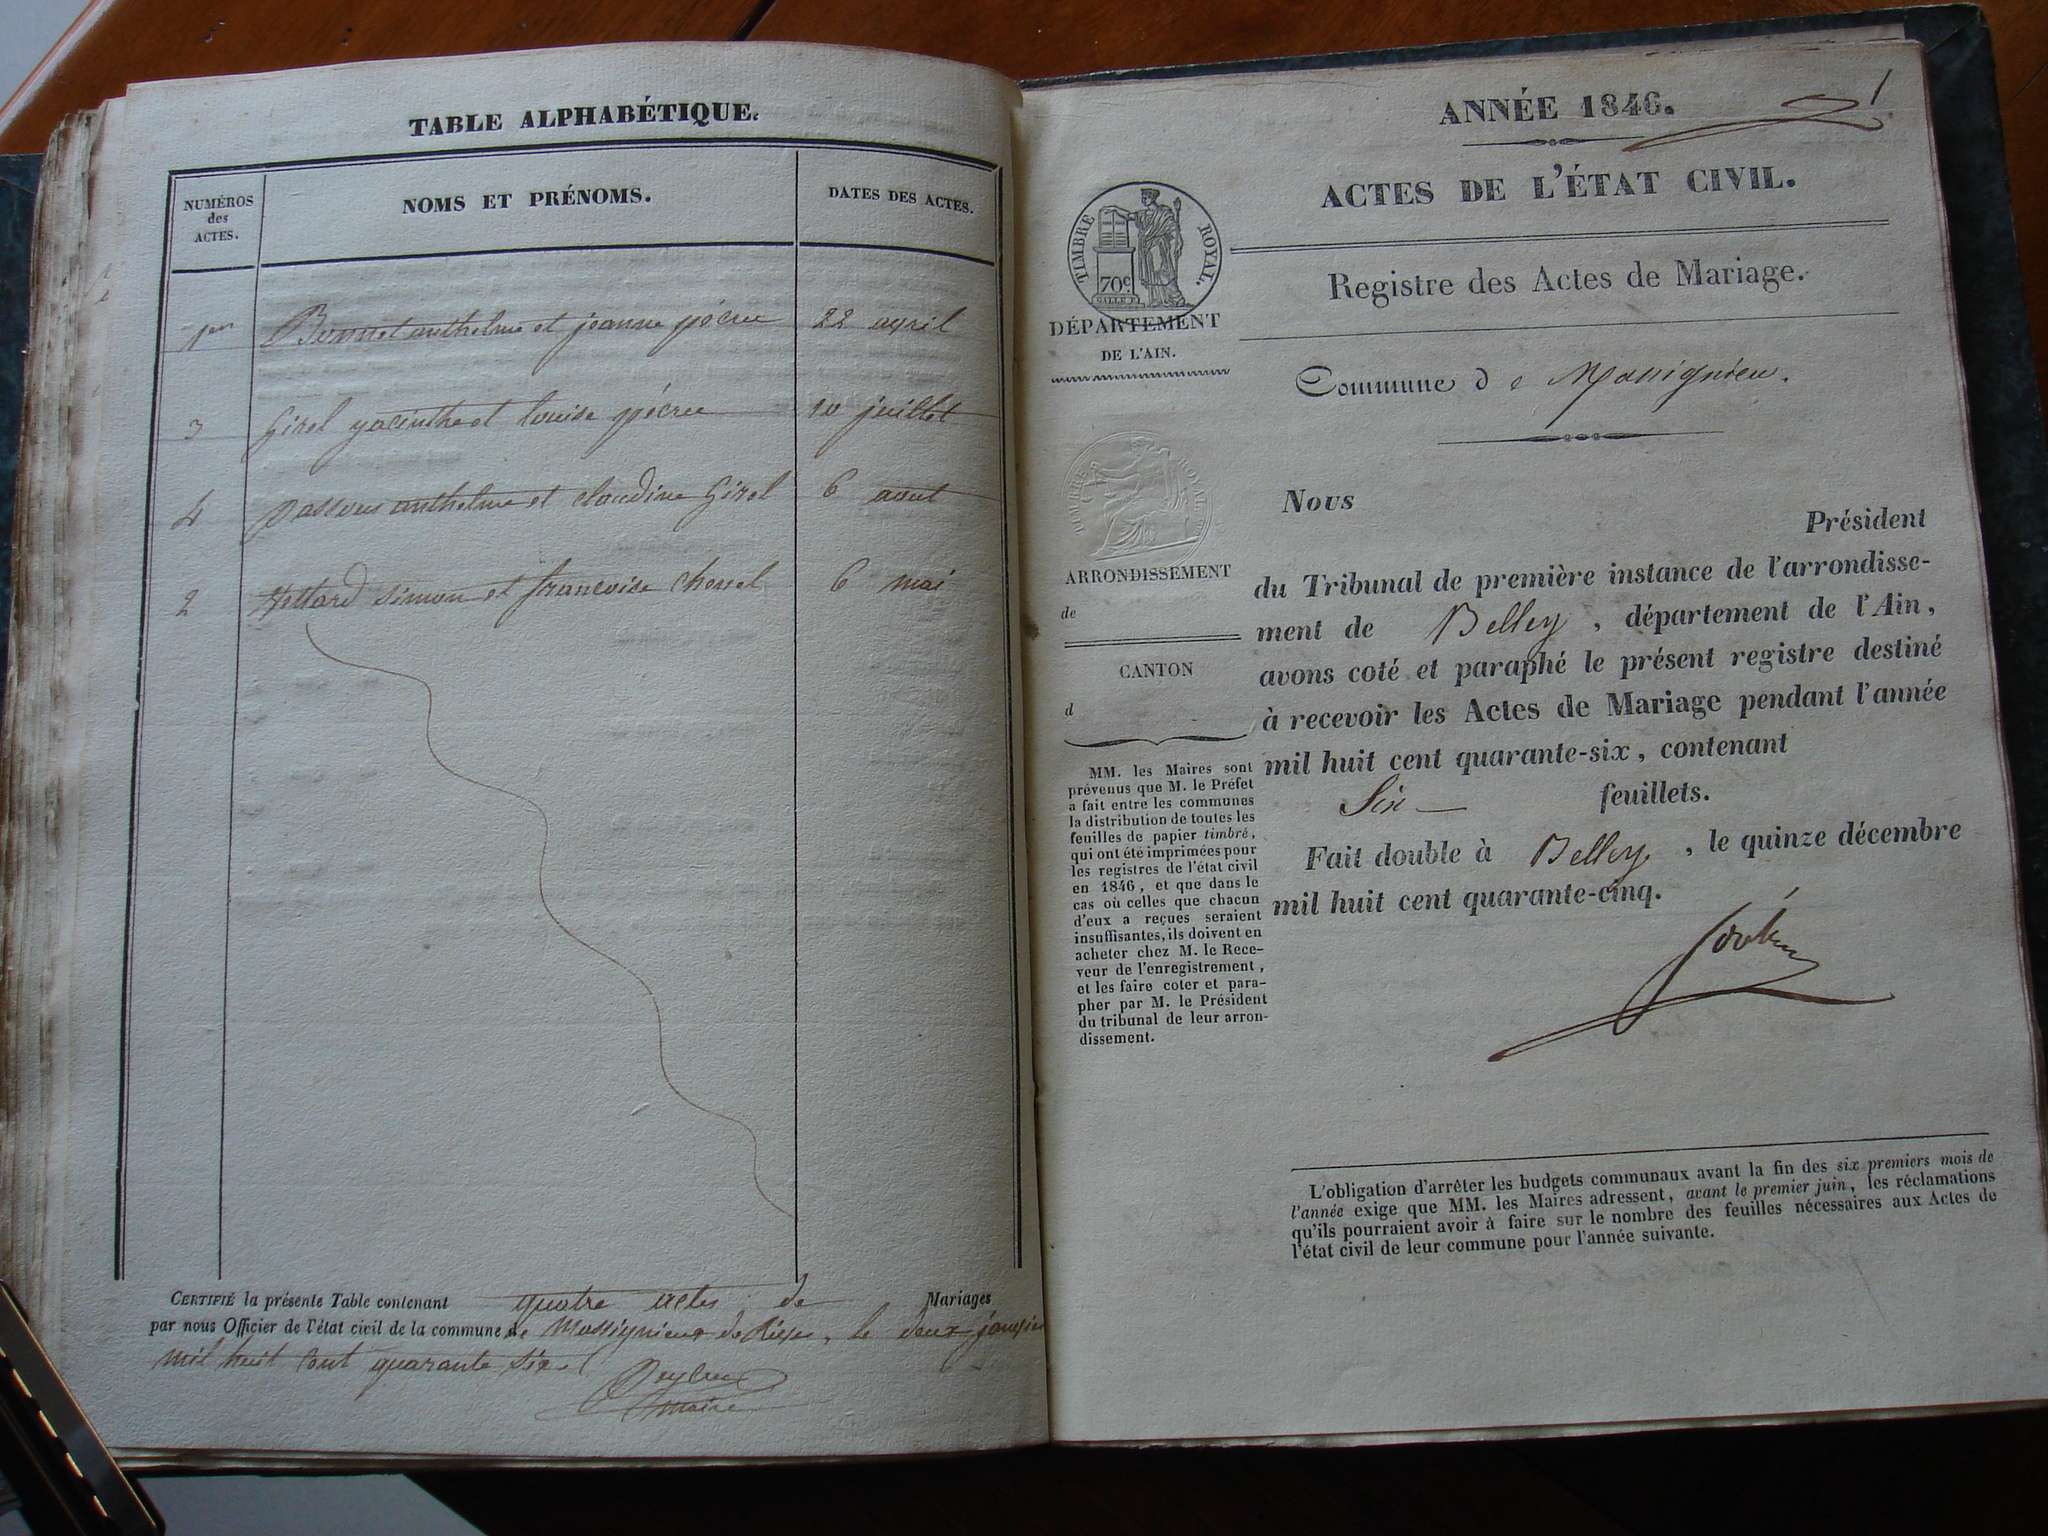 TABLE ALPHABÉTIQUE.
NUMÉROS
des
ACTES.
NOMS ET PRÉNOMS.
DATES DES ACTES.
1er Bonnet anthelme et jeanne pécru 22 avril
3 Girel yacinthe et louise pécru 10 juillet
4 anthelme et claudine Girel 6 aout
2 simon et francoise 6 mai
CERTIFIÉ la présente Table contenant quatre actes de Mariages
par nous Officier de l'état civil de la commune de Massignieu de Rives, le deux janvier
mil huit cent quarante six
maire
1
ANNÉE 1846.
ACTES DE L'ÉTAT CIVIL.
Registre des Actes de Mariage.
TIMBRE ROYAL.
70c.
DÉPARTEMENT
DE L'AIN.
Commune de Massignieu.
ARRONDISSEMENT
de
CANTON
d
MM. les Maires sont
prévenus que M. le Préfet
a fait entre les communes
la distribution de toutes les
feuilles de papier timbré,
qui ont été imprimées pour
les registres de l'état civil
en 1846, et que dans le
cas où celles que chacun
d'eux a reçues seraient
insuffisantes, ils doivent en
acheter chez M. le Rece-
veur de l'enregistrement,
et les faire coter et para-
pher par M. le Président
du tribunal de leur arron-
dissement.
Nous
Président
du Tribunal de première instance de l'arrondisse-
ment de Belley, département de l'Ain,
avons coté et paraphé le présent registre destiné
à recevoir les Actes de Mariage pendant l'année
mil huit cent quarante-six, contenant
Six feuillets.
Fait double à Belley, le quinze décembre
mil huit cent quarante-cinq.
L'obligation d'arrêter les budgets communaux avant la fin des six premiers mois de
l'année exige que MM. les Maires adressent, avant le premier juin, les réclamations
qu'ils pourraient avoir à faire sur le nombre des feuilles nécessaires aux Actes de
l'état civil de leur commune pour l'année suivante.